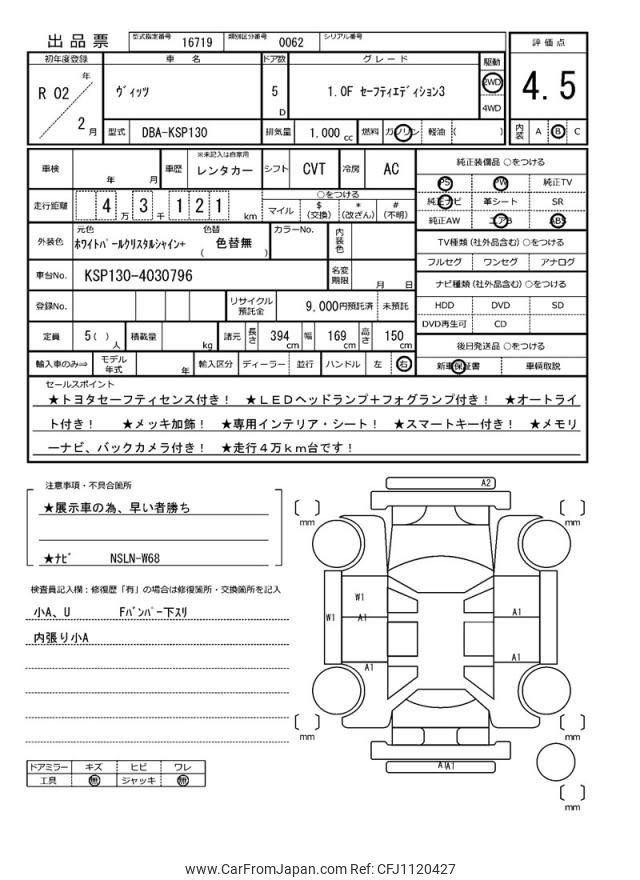 出品票 型式指定番号 16719 類別区分番号 0062 シリアル番号
初年度登録 車名 ドア数 グレード 駆動 評価点
R 02 年 ヴィッツ 5 D 1.0F セーフティエディション3 2WD 4WD 4.5
2 月 型式 DBA-KSP130 排気量 1.000 cc 燃料 ガソリン 軽油 ( ) 内装 A B C
車検 年 月 車歴 ※未記入は自家用 レンタカー シフト CVT 冷房 AC 純正装備品 ○をつける
PS PW 純正TV
走行距離 4 万 3 千 1 2 1 km ○をつける 純正ナビ 革シート SR
マイル $ (交換) * (改ざん) # (不明) 純正AW エアB ABS
外装色 元色 ホワイトパールクリスタルシャイン+ 色替 ( 色替無 ) カラーNo. 内装色 TV種類(社外品含む)○をつける
フルセグ ワンセグ アナログ
車台No. KSP130-4030796 名変期限 月 日 ナビ種類(社外品含む)○をつける
登録No. リサイクル預託金 9,000円預託済 未預託 HDD DVD SD
DVD再生可 CD
定員 5( )人 積載量 kg 諸元 長さ 394 cm 幅 169 cm 高さ 150 cm 後日発送品 ○をつける
輸入車のみ⇒ モデル年式 年 輸入区分 ディーラー 並行 ハンドル 左 右 新車保証書 車輌取説
セールスポイント
★トヨタセーフティセンス付き! ★LEDヘッドランプ+フォグランプ付き! ★オートライ
ト付き! ★メッキ加飾! ★専用インテリア・シート! ★スマートキー付き! ★メモリ
ーナビ、バックカメラ付き! ★走行4万km台です!
注意事項・不具合箇所
★展示車の為、早い者勝ち
★ナビ NSLN-W68
検査員記入欄:修復歴「有」の場合は修復箇所・交換箇所を記入
小A、U Fバンパー下スリ
内張り小A
ドアミラー キズ ヒビ ワレ
工具 無 ジャッキ 無
A2
mm mm
W1
W1 A1 A1
A1 A1
mm mm
A1
mm
www.CarFromJapan.com Ref: CFJ1120427